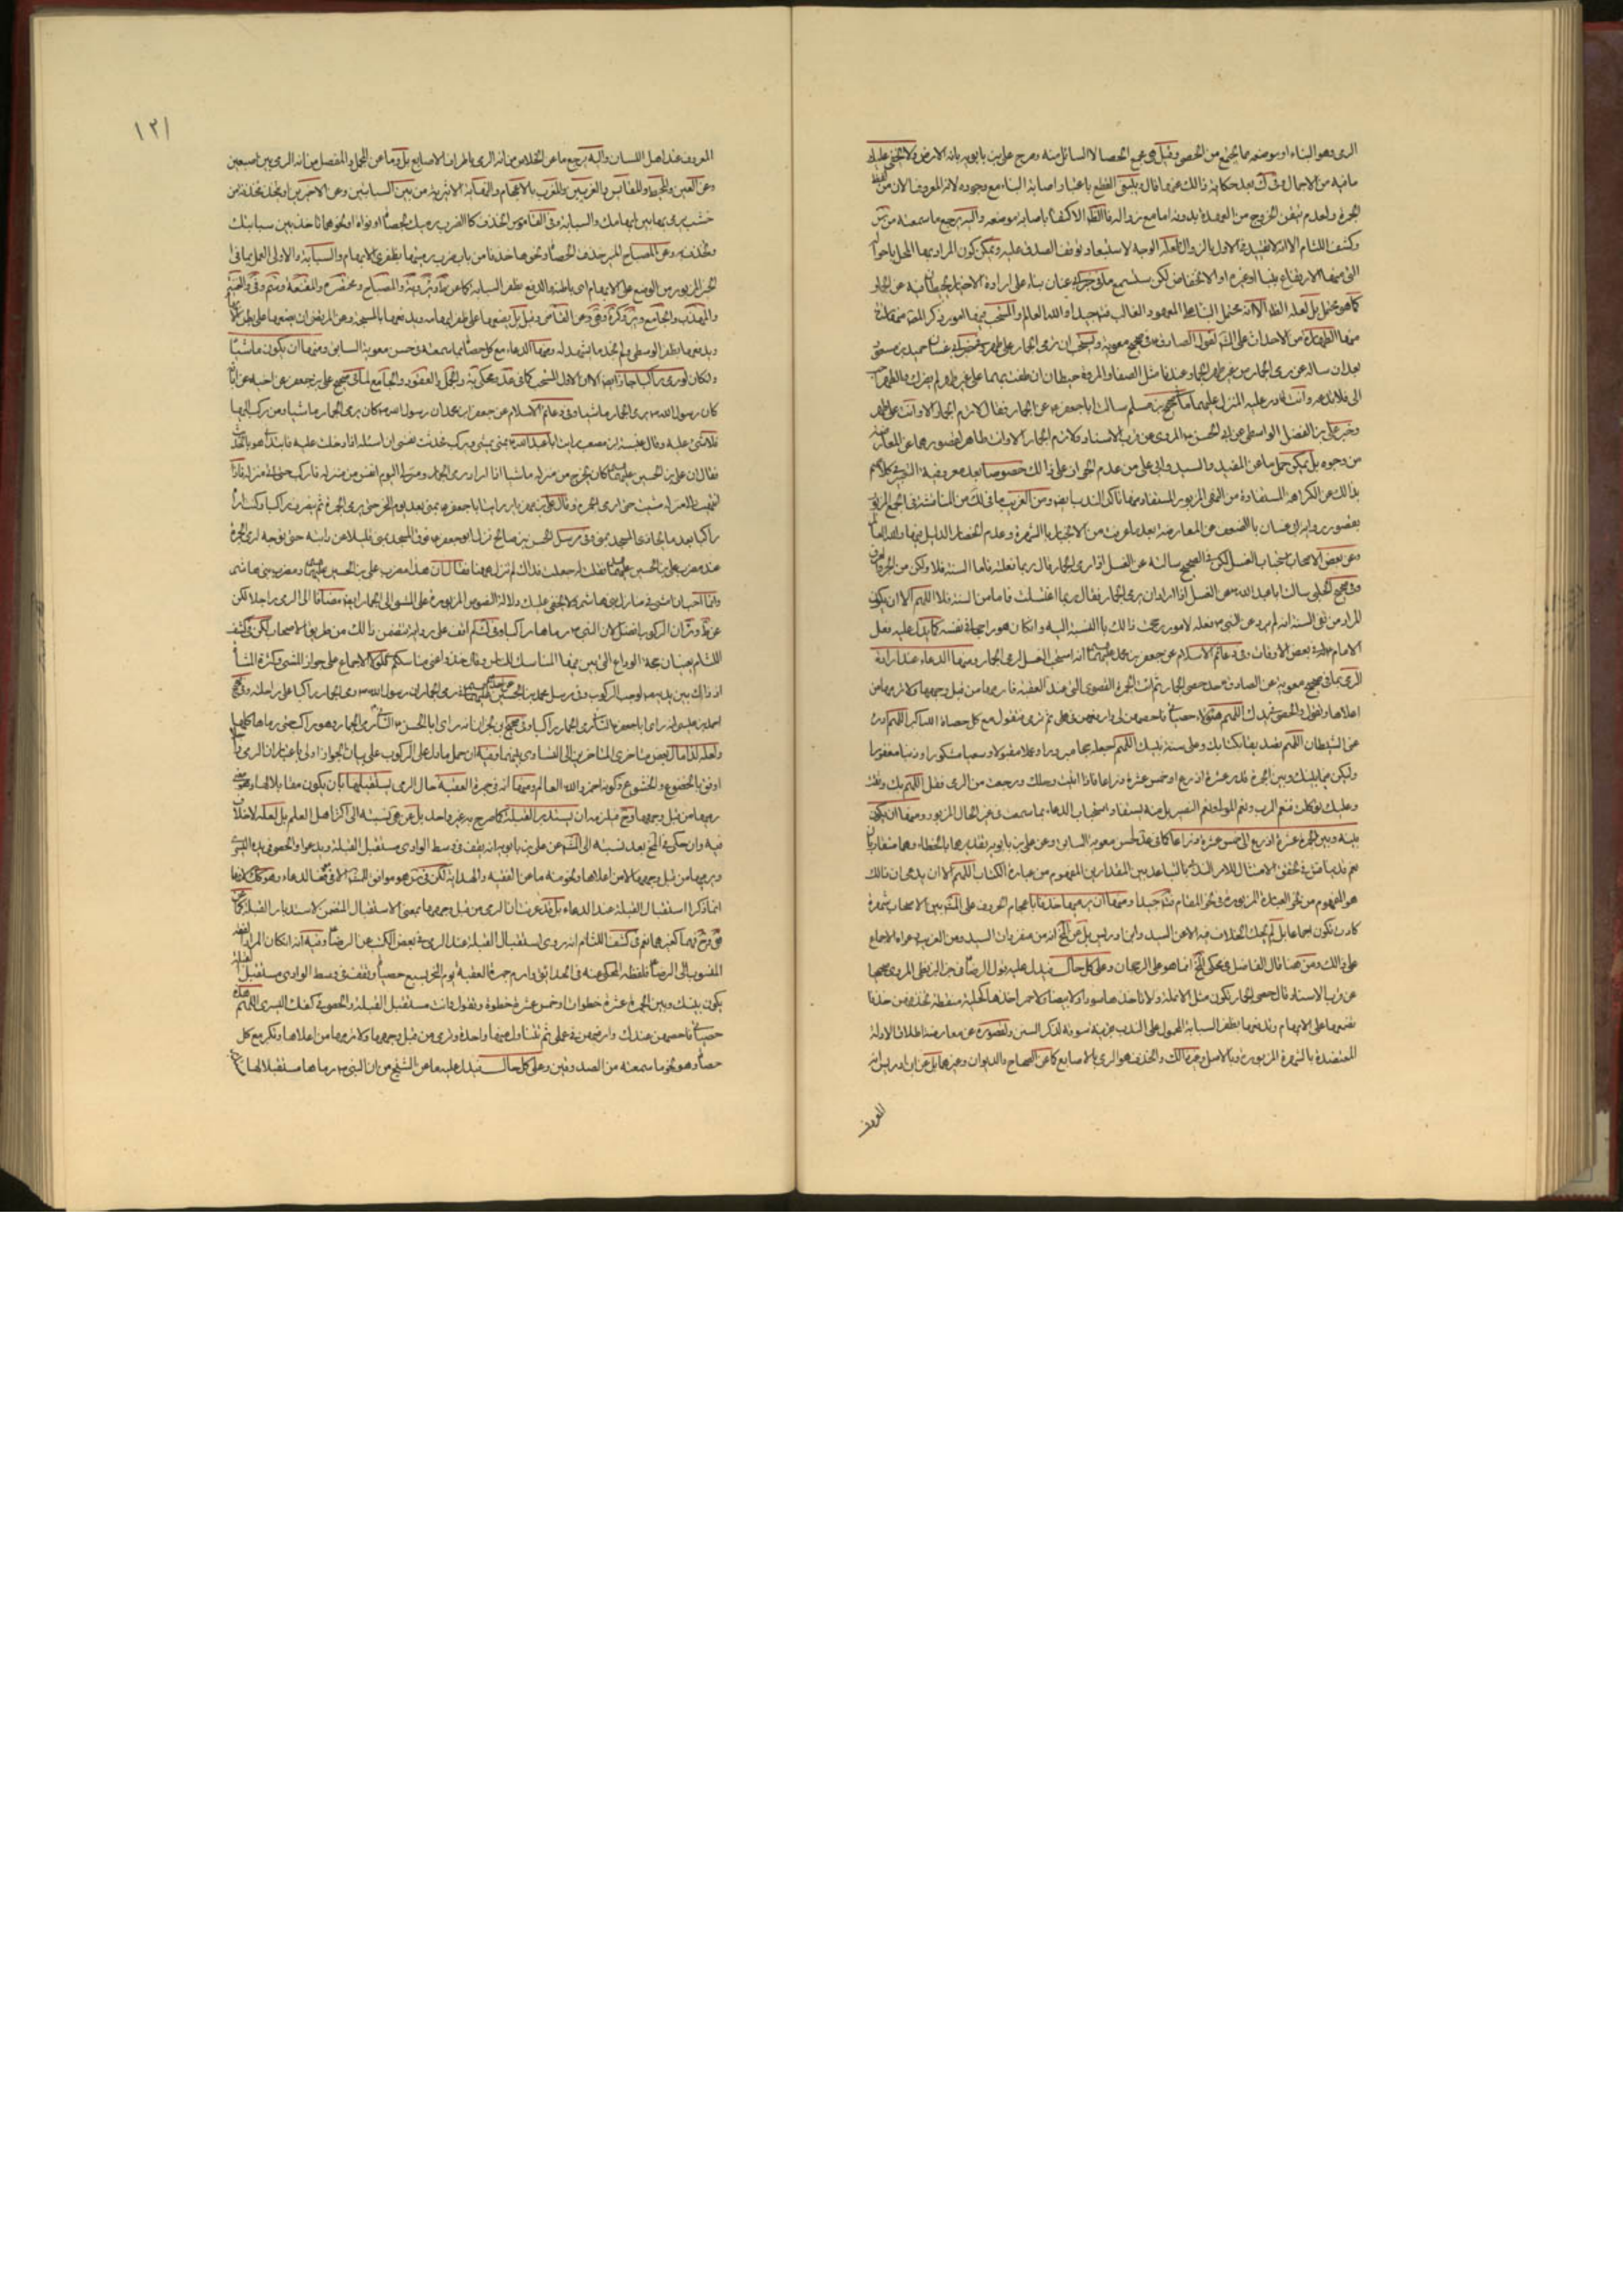 الرمى وهو البناء او موضعه مما يجتمع من الحصى وقيل هى مجمع الحصا لا السائل منه وصرح على بن بابويه بانه الارض ولا يخفى عليك
ما فيه من الاجمال وفى ك بعد حكاية ذلك عنهما قال وينبغى القطع باعتبار اصابة البناء مع وجوده لانه المعروف الان من لفظ
الجمرة ولعدم تيقن الخروج من العهدة بدونه اما مع زواله فالظ الاكتفاء باصابة موضعه واليه يرجع ما سمعته من س
وكشف اللثام الا انه لا تقييد فى الاول بالزوال ولعله الوجه لاستبعاد توقف الصدق عليه ويمكن كون المراد بهما المحل باحواله
التى منها الارتفاع ببناء او غيره او الانخفاض لكن ستسمع ما فى خبر ابى غسان بناء على ارادة الاخبار
كما هو محتمل بل لعله الظ الا انه محتمل البناء على المعهود الغالب فت جيدا والله العالم والمستحب فيها امور ذكر المصنف منها ستة
منها الطهارة من الاحداث على المشهور لقول الصادق ع فى صحيح معوية ويستحب ان ترمى الجمار على طهر وخبر ابى غسان حميد بن مسعود
بعد ان ساله عن رمى الجمار من غير طهر الجمار عندنا مثل الصفا والمروة حيطان ان طفت بينهما على غير طهر لم يضرك والطهر احب
الى فلا تدعه وانت قادر عليه المنزل عليهما ما فى صحيح بن مسلم سالت ابا جعفر ع عن الجمار فقال لا ترم الجمار الا وانت على طهر
وخبر على بن الفضل الواسطى عن ابى الحسن ع المروى عن قرب الاسناد ولا ترم الجمار الا وانت طاهر لقصورهما عن المعارضة
من وجوه بل يمكن حمل ما عن المفيد والسيد وابى على من عدم الجواز على ذلك خصوصا بعد معروفية التعبير فى كلامهم
بذلك عن الكراهة المستفادة من النهى المزبور المستفاد منها تاكد الندب ايضا ومن الغريب ما فى ك من المناقشة فى الجمع المزبور
بقصور رواية ابى غسان بالضعف عن المعارضة بعد ما عرفت من الانجبار بالشهرة وعدم انحصار الدليل فيها والله العالم
وعن بعض الاصحاب استحباب الغسل لكن فى الصحيح سالته عن الغسل اذا رمى الجمار قال ربما فعلته فاما السنة فلا ولكن من الحر والعرق
وفى صحيح الحلبى سالت ابا عبد الله ع عن الغسل اذا اراد ان يرمى الجمار فقال ربما اغتسلت فاما من السنة فلا اللهم الا ان يكون
المراد من نفى السنة انه لم يرد عن النبى ص فعله لامور رجحت ذلك بالنسبة اليه وان كان هو راجحا فى نفسه كما يدل عليه فعل
الامام له فى بعض الاوقات وفى دعائم الاسلام عن جعفر بن محمد عليهما السلام انه استحب الغسل لرمى الجمار ومنها الدعاء عند ارادة
الرمى بما فى صحيح معوية عن الصادق ع خذ حصى الجمار ثم ائت الجمرة القصوى التى عند العقبة فارمها من قبل وجهها ولا ترمها من
اعلاها وتقول والحصى فى يدك اللهم هؤلاء حصياتى فاحصهن لى وارفعهن فى عملى ثم ترمى فتقول مع كل حصاة الله اكبر اللهم ادحر
عنى الشيطان اللهم تصديقا بكتابك وعلى سنة نبيك اللهم اجعله حجا مبرورا وعملا مقبولا وسعيا مشكورا وذنبا مغفورا
وليكن فيما بينك وبين الجمرة قدر عشرة اذرع او خمس عشرة ذراعا فاذا اتيت رحلك ورجعت من الرمى فقل اللهم بك وثقت
وعليك توكلت فنعم الرب ونعم المولى ونعم النصير بل منه يستفاد استحباب الدعاء بما سمعت فى غير الحال المزبور ومنها ان يكون
بينه وبين الجمرة عشرة اذرع الى خمس عشرة ذراعا كما فى عد لحسن معوية السابق وعن على بن بابويه تقديرها بالخطاء وهما متقاربان
نعم قد يناقش فى تحقق الامتثال للامر الندبى بالتباعد بين المقدارين المفهوم من عبارة الكتاب اللهم الا ان يدعى ان ذلك
هو المفهوم من نحو العبارة المزبورة فى نحو المقام فت جيدا ومنها ان يرميها خذفا باعجام الحروف على المش بين الاصحاب شهرة
كادت تكون اجماعا بل لم يحك الخلاف فيه الا عن السيد وابن ادريس بل عن لف انه من متفردات السيد ومن الغريب دعواه الاجماع
على ذلك ومن هنا قال الفاضل فى محكى لف انما هو على الرجحان وعلى كل حال فيدل عليه قول الرضا ع فى خبر البزنطى المروى صحيحا
عن قرب الاسناد قال حصى الجمار تكون مثل الانملة ولا تاخذها سوداء ولا بيضاء ولا حمراء خذها كحلية منقطة تخذفهن خذفا
تضعها على الابهام وتدفعها بظفر السبابة المحمول على الندب بقرينة سوقه لذكر السنن ولقصوره عن معارضة اطلاق الادلة
المعتضدة بالشهرة المزبورة وبالاصل وغير ذلك والخذف هو الرمى بالاصابع كما عن الصحاح والديوان وغيرهما بل عن ابن ادريس انه
المعروف
١٢١
المعروف عند اهل اللسان واليه يرجع ما عن الخلاص من انه الرمى باطراف الاصابع بل وما عن المجمل والمفصل من انه الرمى بين اصبعين
وعن العين والمحيط والمقاييس والغريبين والمغرب بالاعجام والنهاية الاثيرية من بين السبابتين وعن الاخيرين او تتخذ مخذفة من
خشب ترمى بها بين ابهامك والسبابة وفى القاموس الخذف كالضرب رميك بحصاة او نواة او نحوهما تاخذ بين سبابتيك
وتخذف به وعن المصباح المنير خذفت الحصاة ونحوها خذفا من باب ضرب رميتها بطرفى الابهام والسبابة والاولى العمل بما فى
الخبر المزبور من الوضع على الابهام اى باطنه والدفع بظفر السبابة كما عن
والمهذب والجامع وعن القاضى وقيل بل يضعها على ظفر ابهامه ويدفعها بالمسبحة وعن المرتضى ان يضعها على بطن الابهام
ويدفعها بظفر الوسطى ولم نجد ما يشهد له ومنها الدعاء مع كل حصاة بما سمعته فى حسن معوية السابق ومنها ان يكون ماشيا
ولكان لو رمى راكبا جاز ايضا لان الاول المستحب كما فى عد ومحكى ية والجمل والعقود والجامع لما فى صحيح على بن جعفر عن اخيه عن ابائه
كان رسول الله ص يرمى الجمار ماشيا وفى دعائم الاسلام عن جعفر بن محمد ان رسول الله ص كان يرمى الجمار ماشيا ومن ركب اليها
فلا شىء عليه وقال عنبسة بن مصعب رايت ابا عبد الله ع بمنى يمشى ويركب فحدثت نفسى ان اساله اذا دخلت عليه فابتدانى هو بالحديث
فقال ان على بن الحسين عليهما السلام كان يخرج من منزله ماشيا اذا اراد رمى الجمار ومنزلى اليوم انفس من منزله فاركب حتى اتى منزله فاذا
انتهيت الى منزله مشيت حتى ارمى الجمرة وقال على بن مهزيار رايت ابا جعفر ع يمشى بعد يوم النحر حتى يرمى الجمرة ثم ينصرف راكبا وكنت اراه
راكبا بعد ما يحاذى المسجد بمنى وفى مرسل الحسن بن صالح نزل ابو جعفر ع فوق المسجد بمنى قليلا عن دابته حتى توجه لرمى الجمرة
عند مضرب على بن الحسين عليهما السلام فقلت له جعلت فداك لم نزلت هيهنا فقال ان هذا مضرب على بن الحسين عليهما السلام ومضرب بنى هاشم
وانا احب ان امشى فى منازل بنى هاشم ولا يخفى عليك دلالة النصوص المزبورة على المشى الى الجمار ايضا مضافا الى الرمى راجلا لكن
عن ط وئر ان الركوب افضل لان النبى ص رماها راكبا وفى كشف اللثام لم اقف على رواية تتضمن ذلك من طريق الاصحاب لكن فى كشف
اللثام بعينان حجة الوداع التى بين فيها المناسك للناس وقال خذوا عنى مناسككم فلولا الاجماع على جواز المشى وكثرة المشاة
اذ ذاك بين يديه ص لوجب الركوب وفى مرسل محمد بن الحسين عن احدهما عليهما السلام فى رمى الجمار ان رسول الله ص رمى الجمار راكبا على راحلته وفى صحيح
احمد بن عيسى انه راى ابا جعفر ع الثانى رمى الجمار راكبا وفى صحيح ابن ابى نجران انه راى ابا الحسن ع الثانى رمى الجمار وهو راكب حتى رماها كلها
ولعله لذا مال بعض متاخرى المتاخرين الى التساوى بينهما وفيه ان حمل ما دل على الركوب على بيان الجواز اولى باعتبار ان الرمى ماشيا
اوفق بالخضوع والخشوع وكونه احمز والله العالم ومنها انه فى جمرة العقبة حال الرمى يستقبلها بان يكون مقابلا لها
رميها من قبل وجهها وح فيلزمه ان يستدبر القبلة كما صرح به غير واحد بل عن هى نسبته الى اكثر اهل العلم بل لعله لا خلاف
فيه وان حكى فى لف بعد نسبته الى المش عن على بن بابويه انه يقف فى وسط الوادى مستقبل القبلة ويدعو والحصى فى يده اليسرى
ويرميها من قبل وجهها لا من اعلاها ونحو منه ما عن الفقيه والهداية لكن فى ض هو موافق للمش الا فى الدعاء وهو كك لانهما
انما ذكرا استقبال القبلة عند الدعاء بل قد عرفت ان الرمى من قبل وجهها بمعنى الاستقبال المتضمن لاستدبار القبلة كما
هو صريح فيها كغيرهما نعم فى كشف اللثام انه روى استقبال القبلة عند الرمى فى بعض الكتب عن الرضا ع وفيه انه ان كان المراد الفقه
المنسوب الى الرضا ع فلفظه المحكى عنه فى الحدائق وارم جمرة العقبة يوم النحر بسبع حصيات وتقف فى وسط الوادى مستقبل القبلة
يكون بينك وبين الجمرة عشرة خطوات او خمس عشرة خطوة وتقول وانت مستقبل القبلة والحصى فى كفك اليسرى اللهم هذه
حصياتى فاحصهن عندك وارفعهن فى عملى ثم تتناول منها واحدة وترمى من قبل وجهها ولا ترمها من اعلاها وتكبر مع كل
حصاة وهو نحو ما سمعته من الصدوقين وعلى كل حال فيدل عليه ما عن الشيخ من ان النبى ص رماها مستقبلا لها